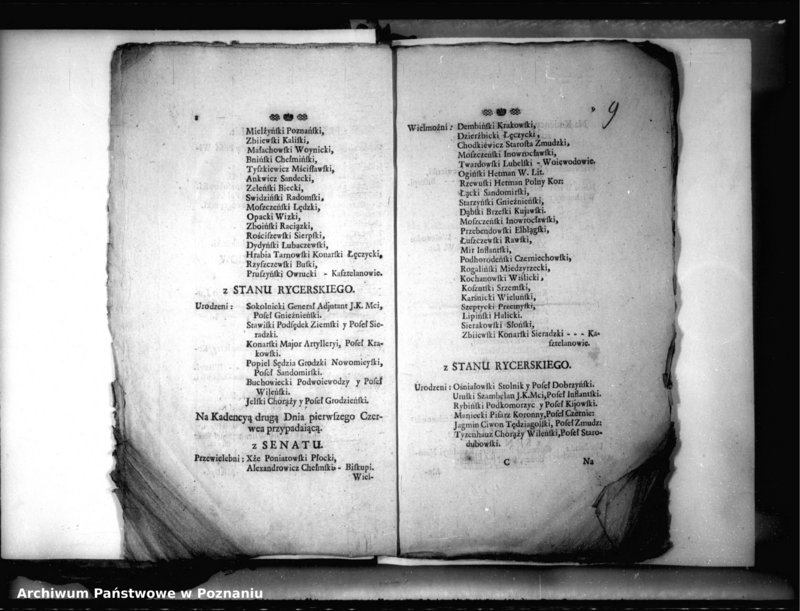 Mielżyński Poznański,
Zbijewski Kaliski,
Małachowski Woynicki,
Bniński Chełmiński,
Tyszkiewicz Mścisławski,
Ankwicz Sandecki,
Zeleński Biecki,
Swidziński Radomski,
Moszczeński Lędzki,
Opacki Wizki,
Zboiński Raciązki,
Rościszewski Sierpski,
Dydyński Lubaczewski,
Hrabia Tarnowski Konarski Łęczycki,
Rzyszczewski Buski,
Pruszyński Owrucki - Kasztelanowie.
z STANU RYCERSKIEGO.
Urodzeni: Sokolnicki General Adjutant J.K. Mci,
Poseł Gnieźnieński.
Stawiski Podsędek Ziemski y Poseł Sie-
radzki.
Konarski Major Artylleryi, Poseł Kra-
kowski.
Popiel Sędzia Grodzki Nowomieyski,
Poseł Sandomirski.
Buchowiecki Podwoiewodzy y Poseł
Wileński.
Jelski Chorąży y Poseł Grodzieński.
Na Kadencyą drugą Dnia pierwszego Czer-
wca przypadaiącą.
z SENATU.
Przewielebni: Xże Poniatowski Płocki,
Alexandrowicz Chełmski - Biskupi.
Wiel-
9
Wielmożni: Dembiński Krakowski,
Dzierźbicki Łęczycki,
Chodkiewicz Starosta Zmudzki,
Moszczeński Inowrocławski,
Twardowski Lubelski - Woiewodowie.
Ogiński Hetman W. Lit.
Rzewuski Hetman Polny Kor:
Łącki Sandomirski,
Starzyński Gnieźnieński,
Dąbski Brzeski Kujawski.
Moszczeński Inowrocławski,
Przebendowski Elbląski,
Łuszczewski Rawski,
Mir Inflantski,
Podhorodeński Czerniechowski,
Rogaliński Miedzyrzecki,
Kochanowski Wislicki,
Koszutski Srzemski,
Karśnicki Wieluński,
Szeptycki Przemyski,
Lipiński Halicki.
Sierakowski Słoński,
Zbijewski Konarski Sieradzki - - - Ka-
sztelanowie.
z STANU RYCERSKIEGO.
Urodzeni: Ośniałowski Stolnik y Poseł Dobrzyński.
Uruski Szambelan J.K.Mci, Poseł Inflantski.
Rybiński Podkomorzyc y Poseł Kijowski.
Maniecki Pisarz Koronny, Poseł Czernie:
Jagmin Ciwon Tędziagolski, Poseł Zmudz:
Tyzenhauz Chorąży Wileński, Poseł Staro-
dubowski.
C Na
Archiwum Państwowe w Poznaniu